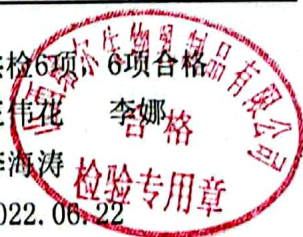 共检6项，6项合格
王伟花 李娜
李海涛
2022.06.22
塑制品有限公司
合格
检验专用章